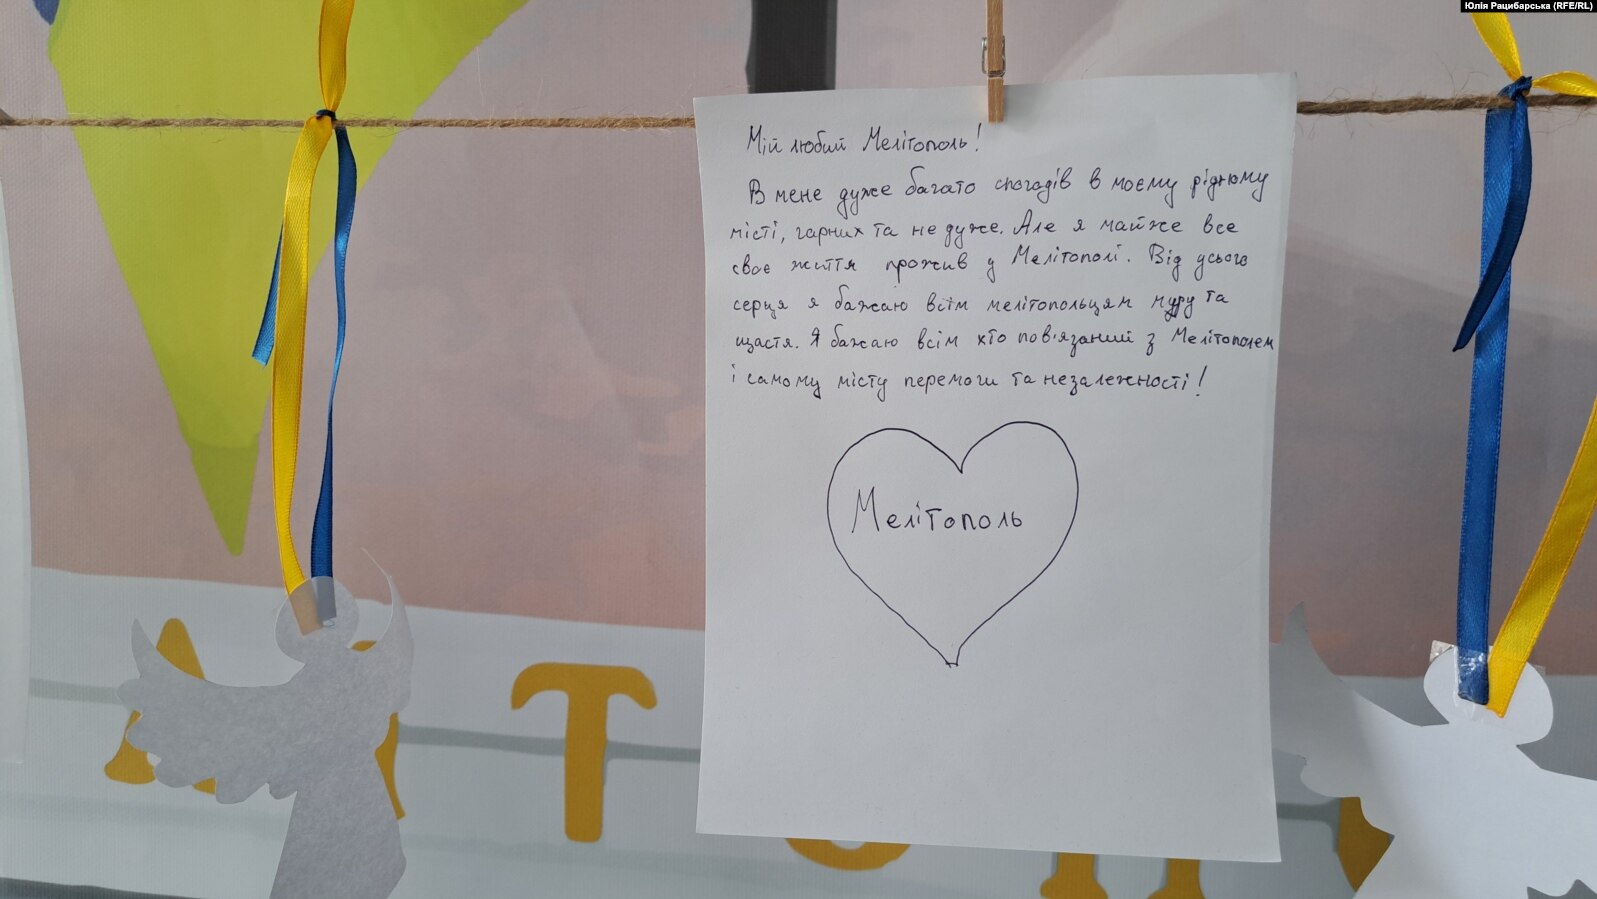 Юлія Рацибарська (RFE/RL)
Мій любий Мелітополь!
В мене дуже багато спогадів в моєму рідному
місті, гарних та не дуже. Але я майже все
своє життя прожив у Мелітополі. Від усього
серця я бажаю всім мелітопольцям миру та
щастя. Я бажаю всім хто пов'язаний з Мелітополем
і самому місту перемоги та незалежності!
Мелітополь